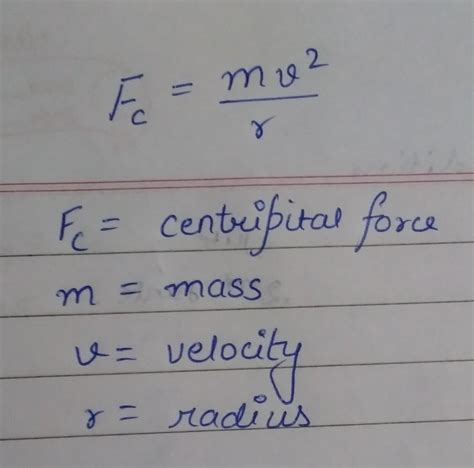 Fc = mv²/r
Fc = centripital force
m = mass
v = velocity
r = radius